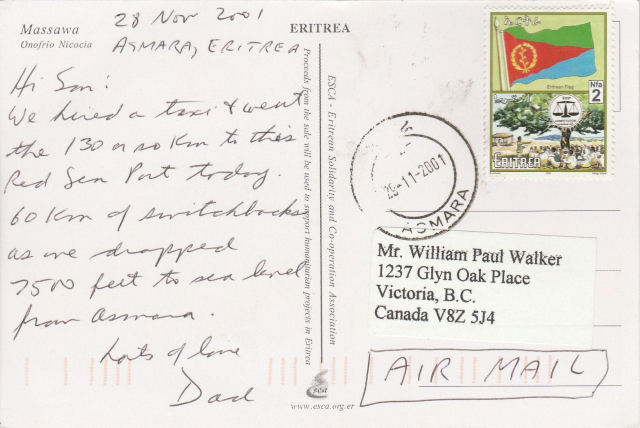 Massawa
Onofrio Nicocia
28 Nov 2001
ASMARA, ERITREA
Hi Son!
We hired a taxi & went
the 130 or so Km to this
Red Sea Port today.
60 Km of switchbacks
as we dropped
7500 feet to sea level
from Asmara.
Lots of love
Dad
ERITREA
ESCA - Eritrean Solidarity and Co-operation Association
Proceeds from the sale will be used to support humanitarian projects in Eritrea
esca
www.esca.org.er
ኤርትራ
Eritrean Flag
Nfa
2
ERITREA
29-11-2001
ASMARA
Mr. William Paul Walker
1237 Glyn Oak Place
Victoria, B.C.
Canada V8Z 5J4
AIR MAIL